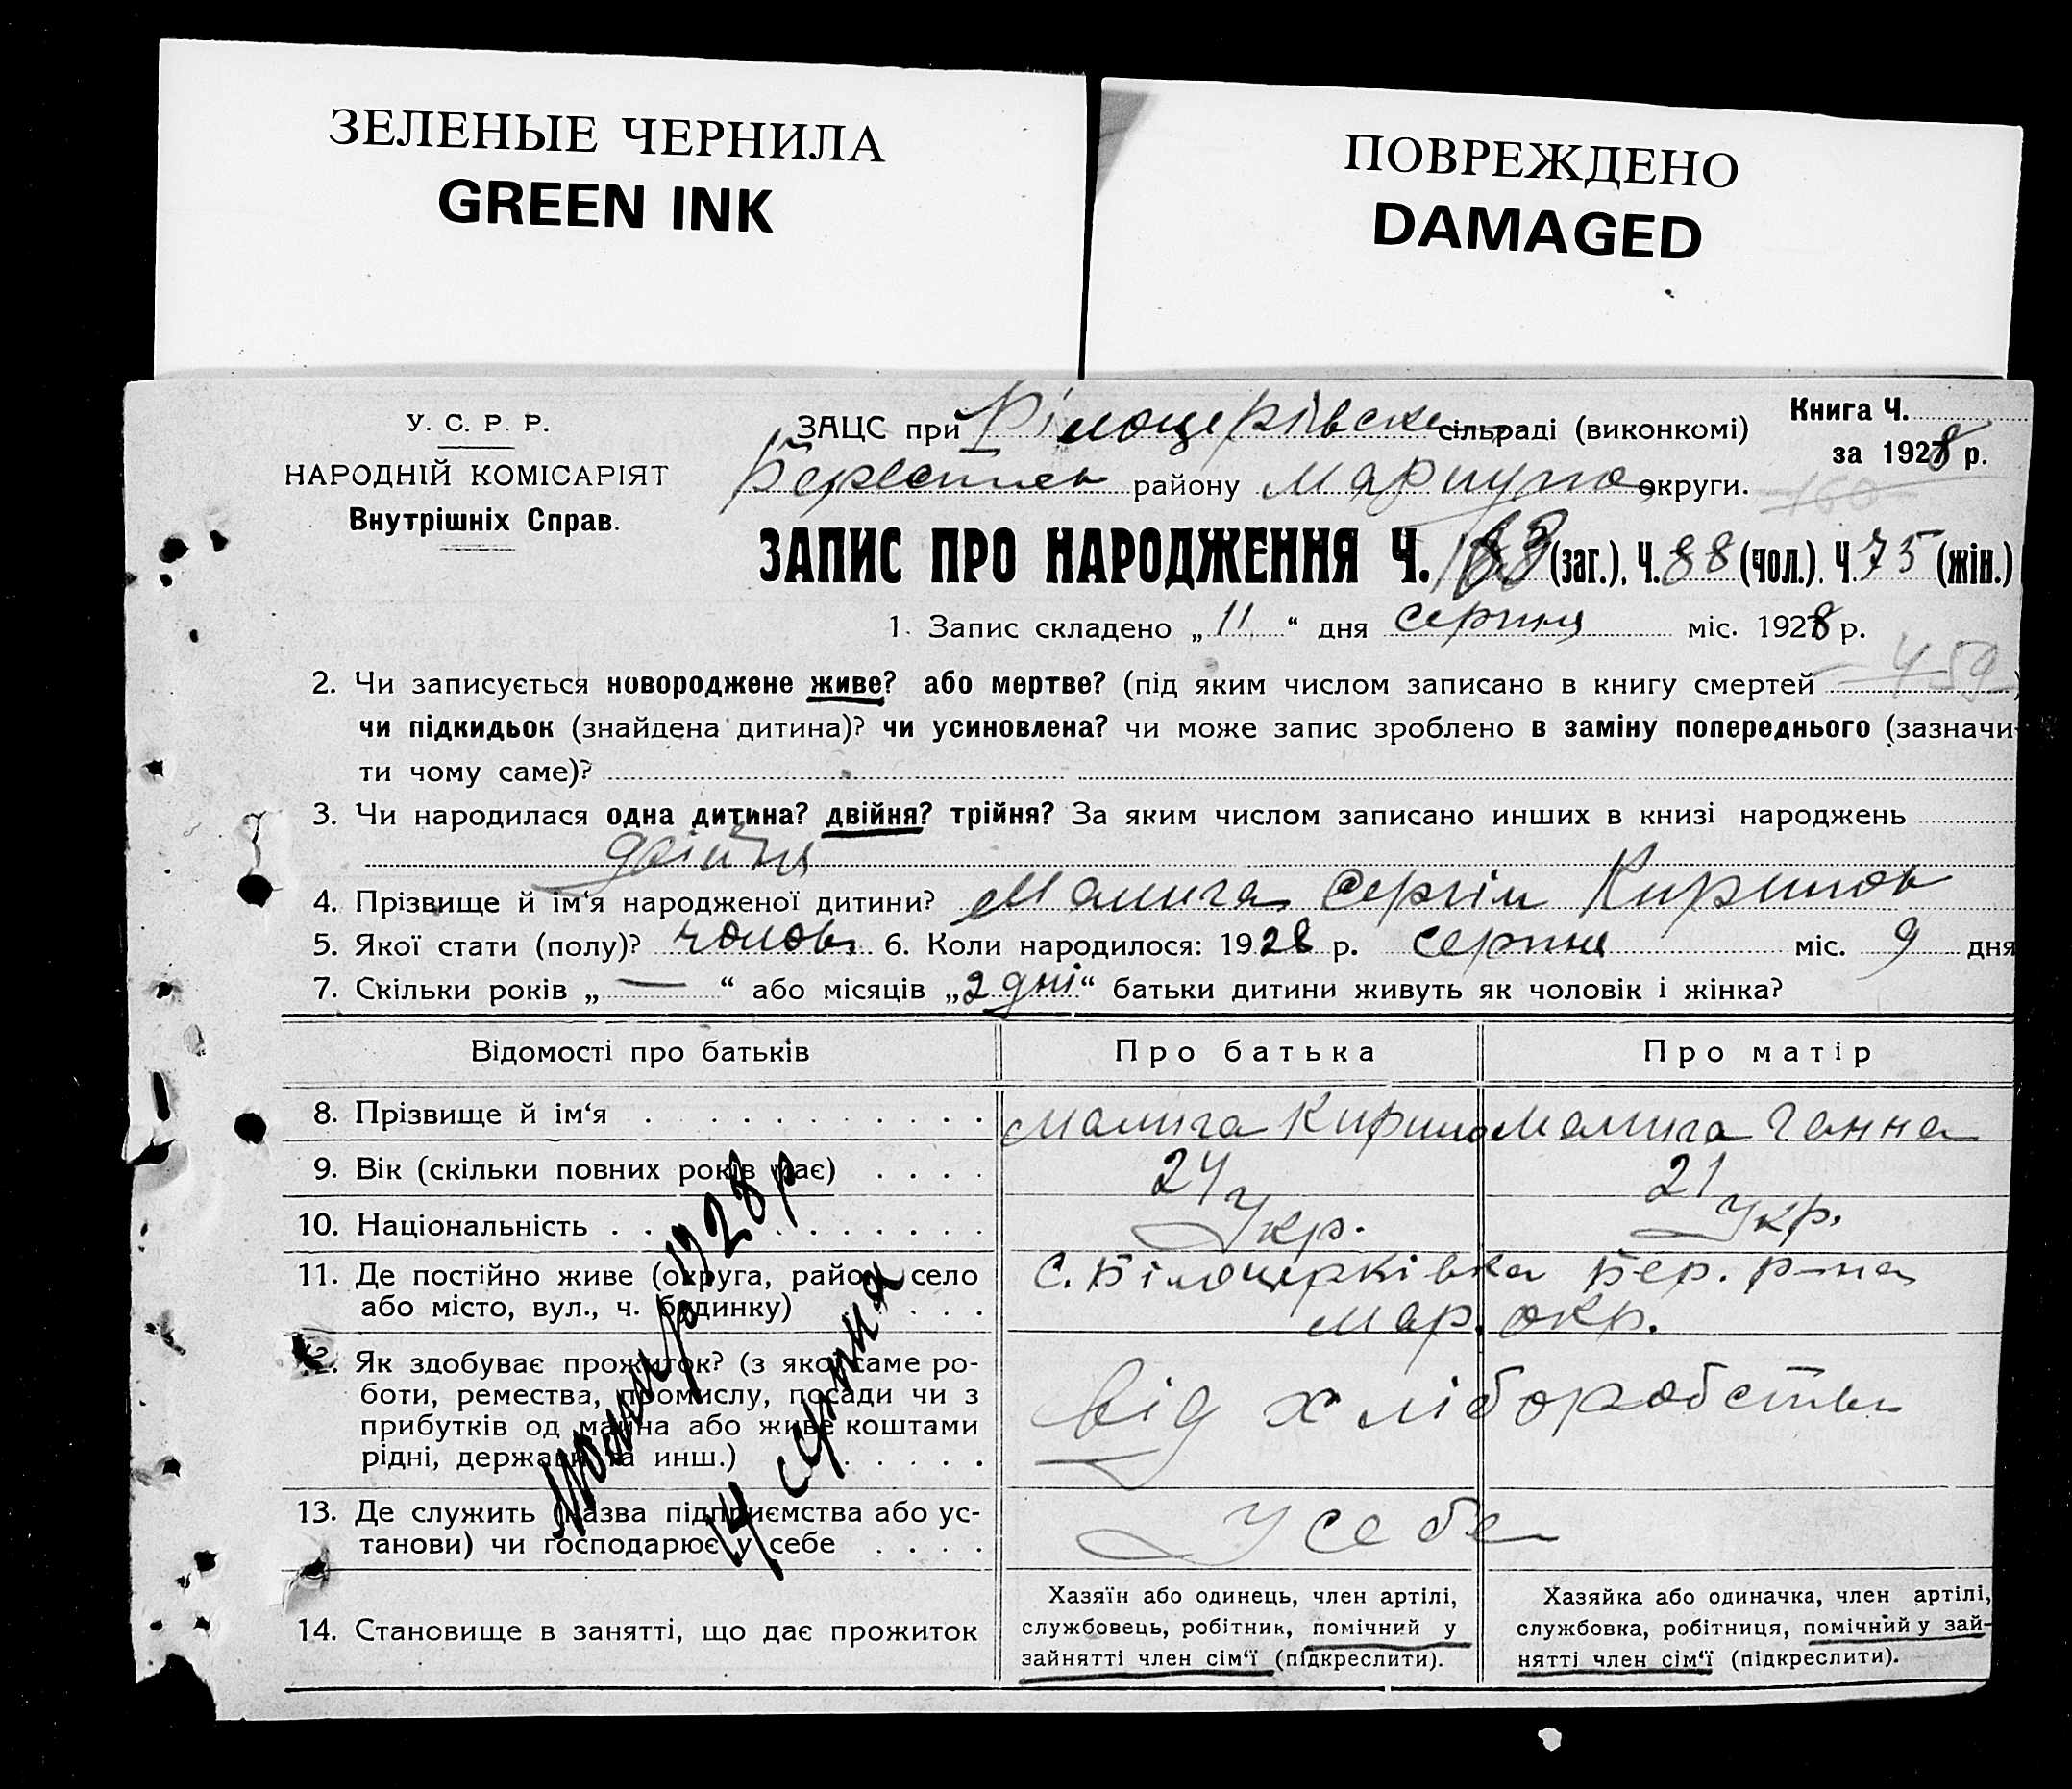 ЗЕЛЕНЫЕ ЧЕРНИЛА
GREEN INK
ПОВРЕЖДЕНО
DAMAGED
У. С. Р. Р.
НАРОДНІЙ КОМІСАРІЯТ
Внутрішніх Справ.
Книга Ч.
за 1928 р.
ЗАЦС при Білоцерківськ сільраді (виконкомі)
Берестов району Маріупо округи.
160
ЗАПИС ПРО НАРОДЖЕННЯ Ч. 163 (заг.). Ч. 88 (чол.). Ч. 75 (жін.)
1. Запис складено „11“ дня серпня міс. 1928 р.
2. Чи записується новороджене живе? або мертве? (під яким числом записано в книгу смертей 459)
чи підкидьок (знайдена дитина)? чи усиновлена? чи може запис зроблено в заміну попереднього (зазначи-
ти чому саме)?
3. Чи народилася одна дитина? двійня? трійня? За яким числом записано инших в книзі народжень
двійня
4. Прізвище й ім‘я народженої дитини? Малига Сергій Кирилов
5. Якої стати (полу)? чолов. 6. Коли народилося: 1928 р. серпня міс. 9 дня
7. Скільки років „—“ або місяців „2 дні“ батьки дитини живуть як чоловік і жінка?
Відомості про батьків Про батька Про матір
8. Прізвище й ім‘я Малига Кирило Малига Ганна
9. Вік (скільки повних років має) 24 21
10. Національність Укр. Укр.
11. Де постійно живе (округа, район, село
або місто, вул., ч. будинку)
с. Білоцерківка Бер. р-на
Мар. окр.
12. Як здобуває прожиток? (з якої саме ро-
боти, ремества, промислу, посади чи з
прибутків од майна або живе коштами
рідні, держави та инш.)
від хліборобства
13. Де служить (назва підприємства або ус-
танови) чи господарює у себе
У себе
14. Становище в занятті, що дає прожиток
Хазяїн або одинець, член артілі,
службовець, робітник, помічний у
зайнятті член сім‘ї (підкреслити).
Хазяйка або одиначка, член артілі,
службовка, робітниця, помічний у зай-
нятті член сім‘ї (підкреслити).
1928 р
14 серпня